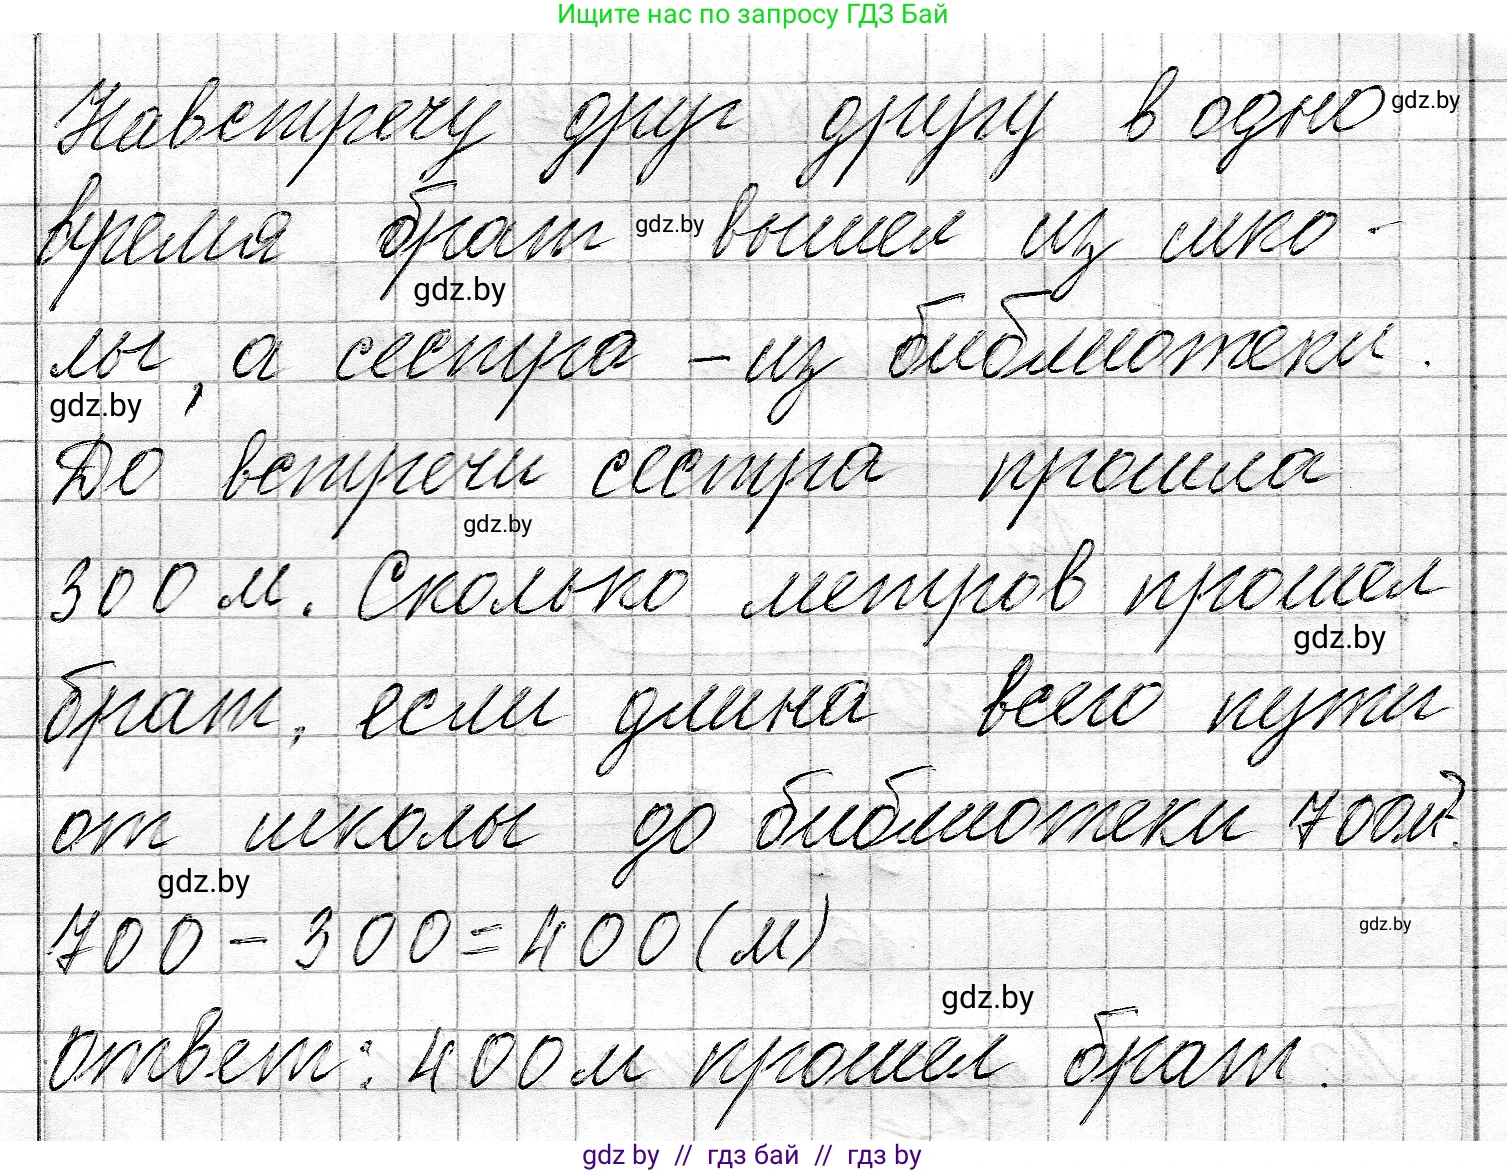 Ищите нас по запросу ГДЗ Бай
Навстречу друг другу в одно gdz.by
время брат gdz.by вышел из шко-
gdz.by
лы, а сестра - из библиотеки.
gdz.by
До встречи сестра прошла
gdz.by
300 м. Сколько метров прошел
gdz.by
брат, если длина всего пути
от школы до библиотеки 700м?
gdz.by
700 - 300 = 400 (м)
gdz.by
gdz.by
ответ: 400 м прошел брат.
gdz.by // гдз бай // гдз by